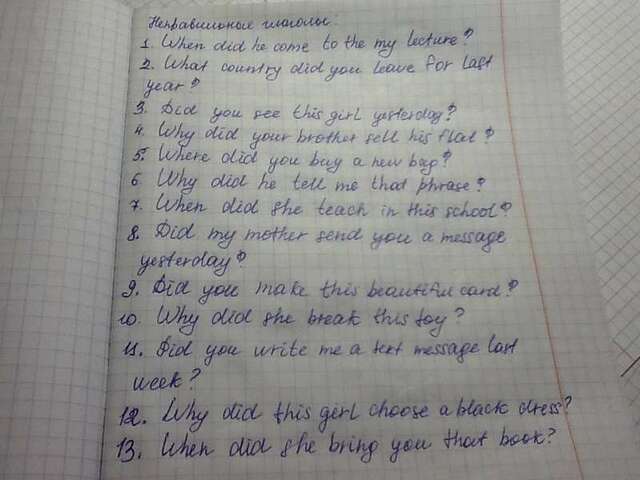 Неправильные глаголы:
1. When did he come to the my lecture?
2. What country did you leave for last
year?
3. Did you see this girl yesterday?
4. Why did your brother sell his flat?
5. Where did you buy a new bag?
6. Why did he tell me that phrase?
7. When did she teach in this school?
8. Did my mother send you a message
yesterday?
9. Did you make this beautiful card?
10. Why did she break this toy?
11. Did you write me a text message last
week?
12. Why did this girl choose a black dress?
13. When did she bring you that book?